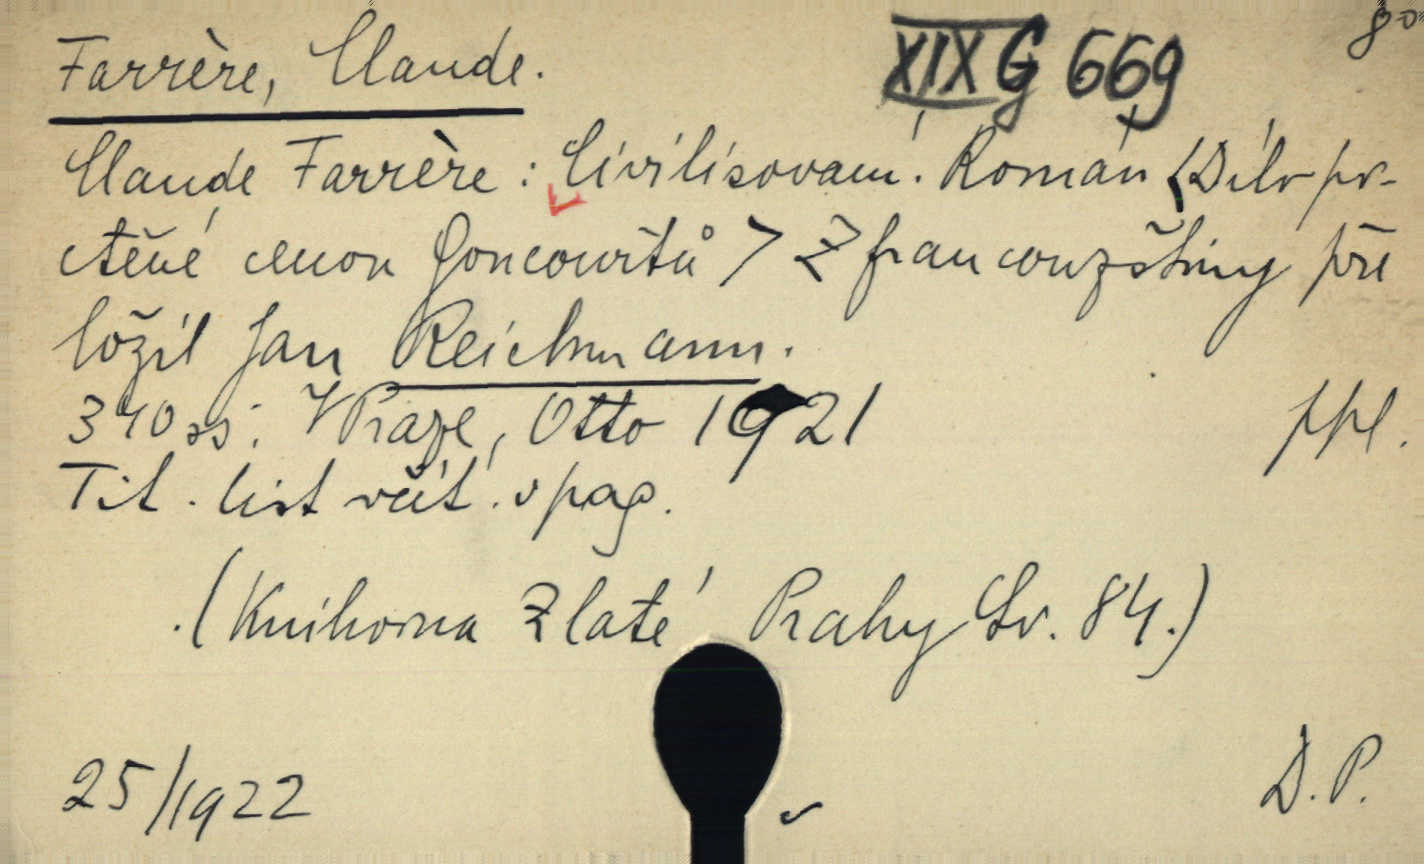 Farrère, Claude.
XIX G 669
8°
Claude Farrère: Civilisovaní. Román <Dílo po-
ctěné cenou Goncourtů> Z francouzštiny pře
ložil Jan Reichmann.
340 ss; V Praze, Otto 1921 ppl.
Tit. list včít. v pag.
(Knihovna Zlaté Prahy Sv. 84.)
25/1922
D.P.